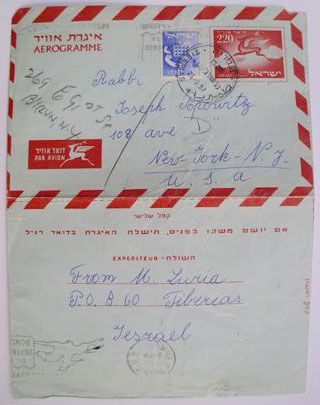 איגרת אוויר
AEROGRAMME
220
ישראל
Rabbi
Joseph
108 ave "D"
New-York - N.Y.
U. S. A
269 E
דואר אוויר
PAR AVION
קפל שלישי
אם יושם משהו בפנים, תישלח האיגרת בדואר רגיל
EXPEDITEUR - השולח
From M. Luria
P.O.B. 60 Tiberias
Jesrael